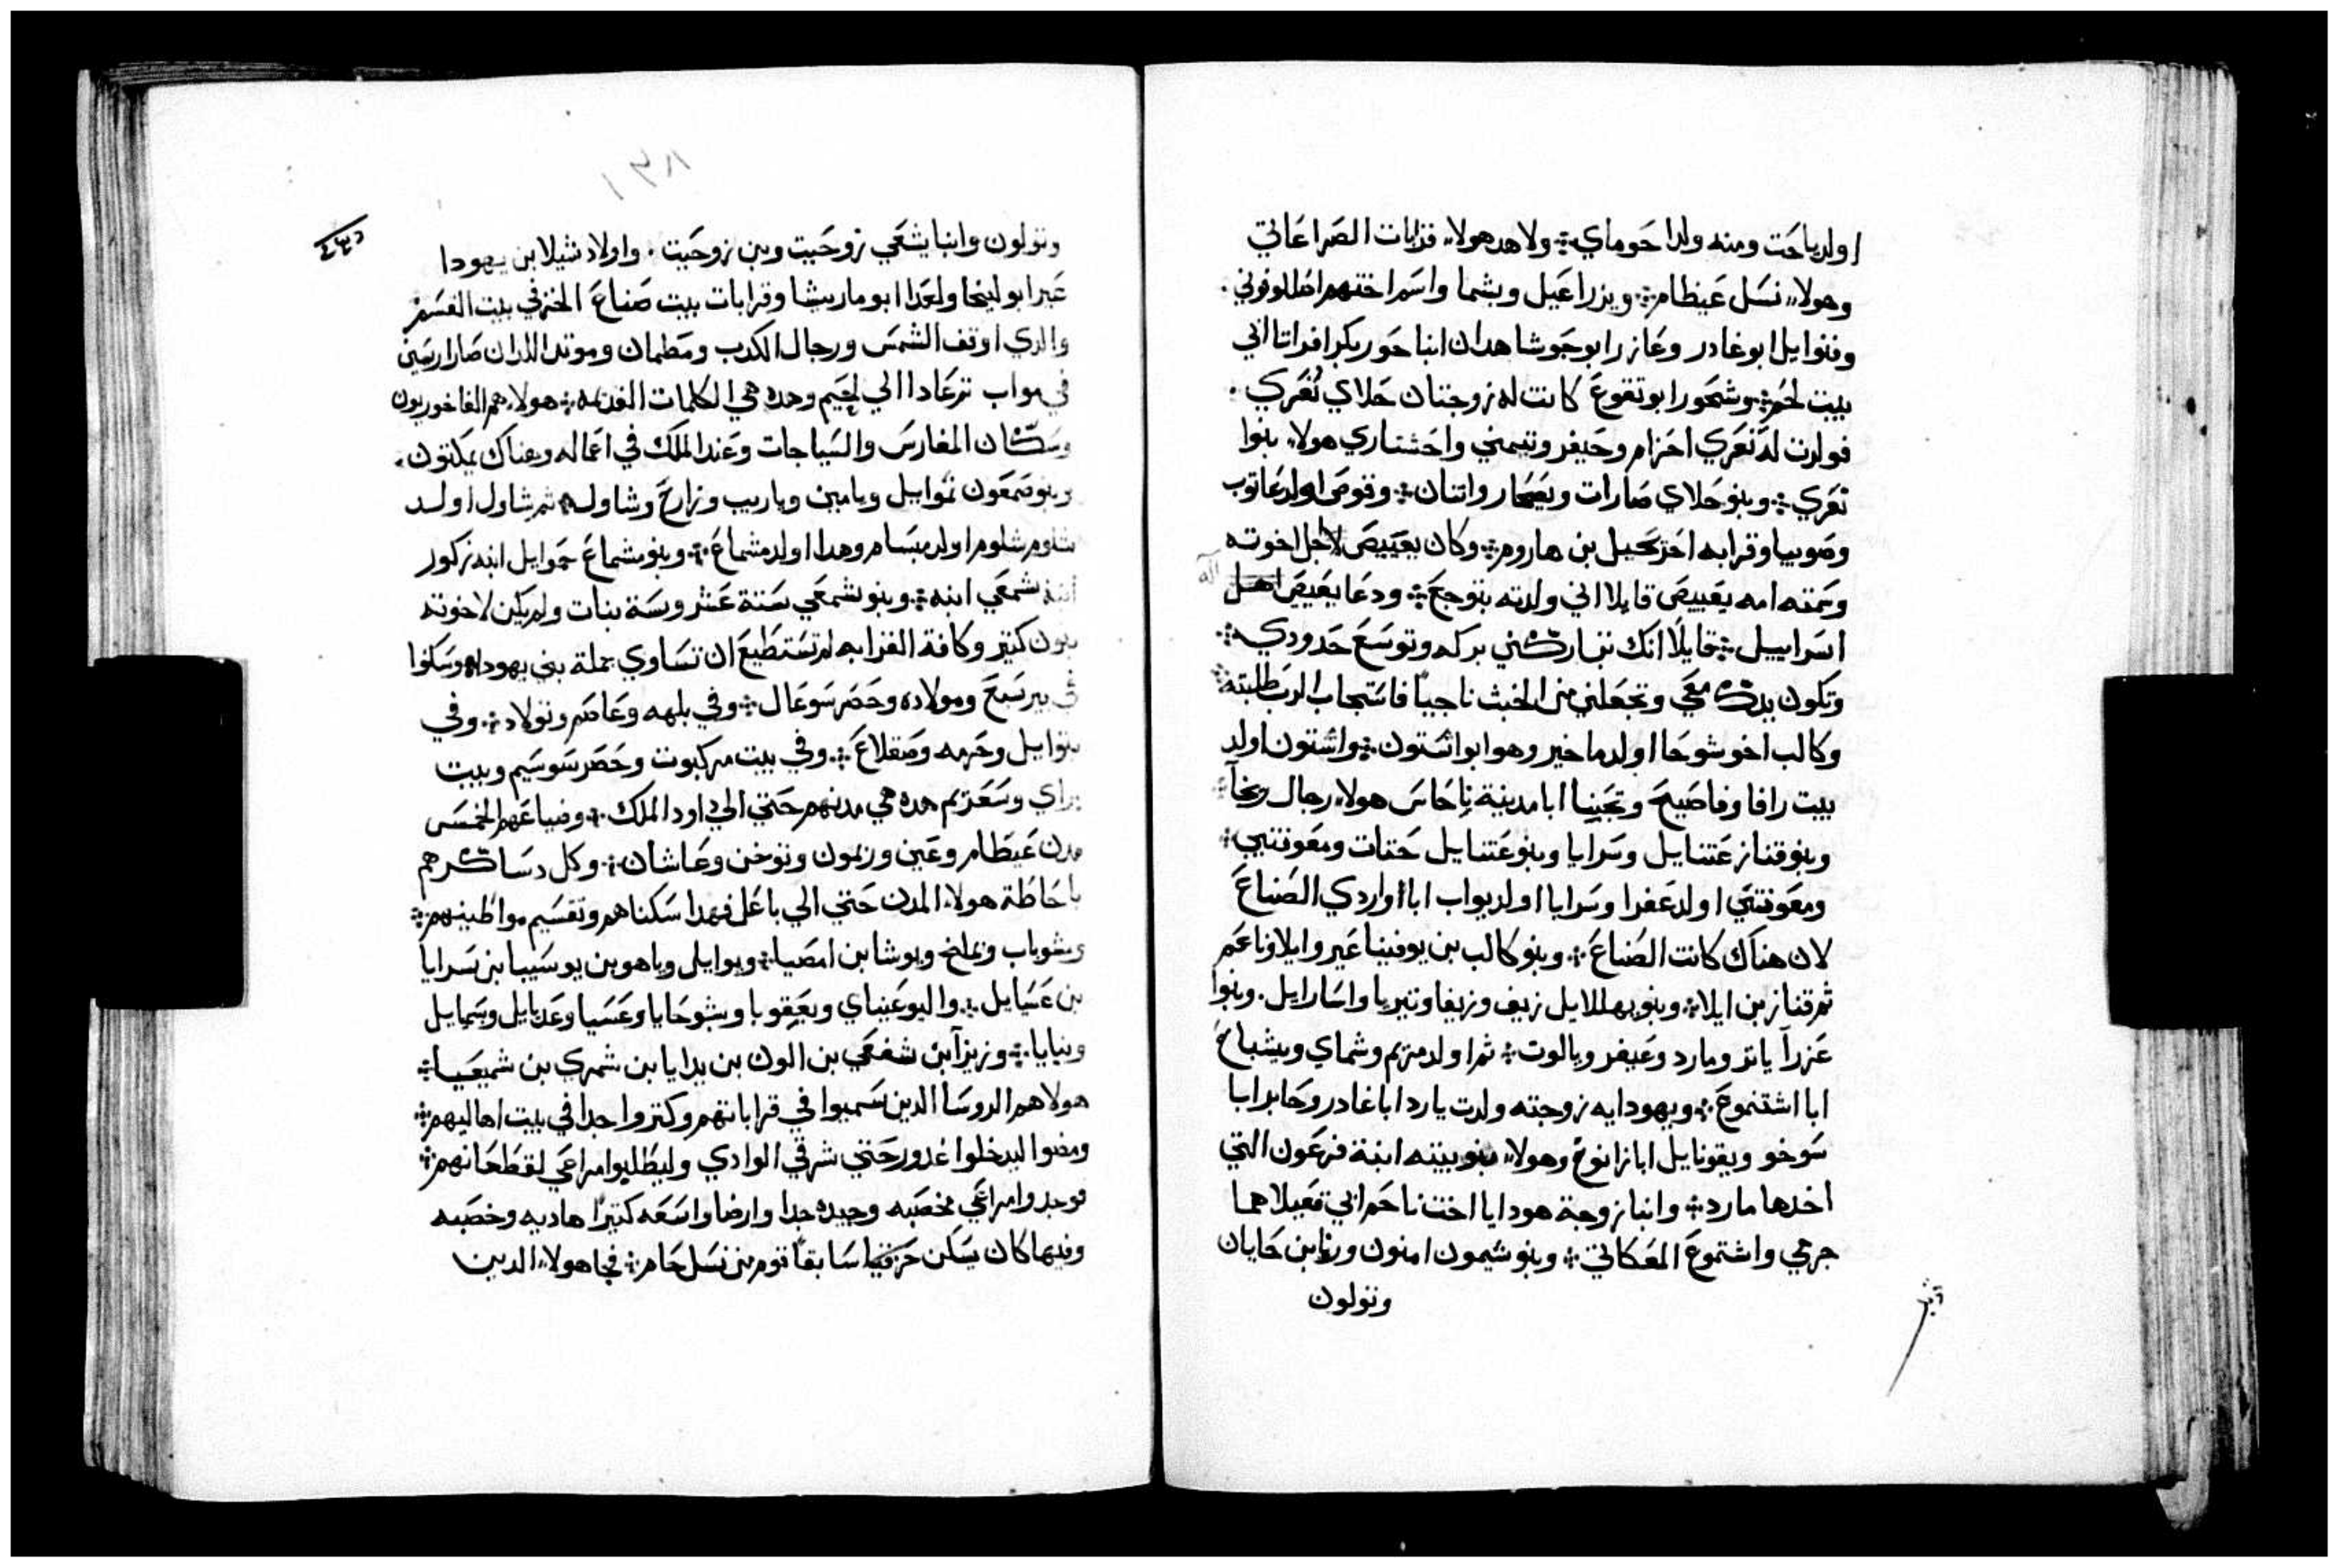 اولد ياحَت ومنه ولدا حَوماي ؞ ولاهد هولاء قرابات الصَراعَاتي
وهولاء نسَل عَيظام ؞ ويزراعَيل ويشما واسَم اختهم اظللوفوني .
وفنوايل ابو غادر وعَازر ابو حَوشا هدان ابنا حَور بكر افراتا ابي
بيت لحَم ؞ وشحَور ابو تقوعَ كانت له زوجتان حَلاي نُعَري .
فولدت له نَعَري احَزام وحَيفر وتيمني واحَشتاري هولاء بنوا
نعَري ؞ وبنو حَلاي صَارات ويصَحَار واتنان ؞ وقوصَ اولد عَانوب
وصَوبيا وقرابه احَرحَيل بن هاروم ؞ وكان يعَبيصَ لاجل اخوته
وسَمته امه يعَبيصَ قايلا اني ولدته بتوجعَ ؞ ودعَا يعَبيصَ اله
اسَراييل ؞ قايلًا انك تباركني بركه وتوسَعَ حَدودي ؞
وتكون يدك معَي وتجعَلني من الخبث ناجيًا فاسَتجاب الرب طلبته ؞
وكالب اخو شوحَا اولد ماخير وهو ابو اشَتون ؞ واشتون اولد
بيت رافا وفاصَيحَ وتحَينا ابا مدينة ناحَاسَ هولاء رجال ريخا ؞
وبنو قناز عَتنايل وسَرايا وبنو عَتنايل حَتات ومعَونتيي ؞
ومعَونتيَ اولد عَفرا وسَرايا اولد يواب ابا اواردي الصَناعَ
لان هناك كانت الصُناعَ ؞ وبنو كالب بن يوفنيا عَير وايلا وناعَم
ثم قناز بن ايلا ؞ وبنو يهللايل زيف وزيفا وتيريا واسَارايل . وبنوا
عَزرآ ياتر ومارد وعَيفر ويالوت ؞ ثم اولد مريم وشماي ويشباحَ
ابا اشتموعَ ؞ ويهودايه زوجته ولدت يارد ابا غادر وحَابر ابا
سَوخو ويقوتايل ابا زانوحَ وهولاء بنو بيته ابنة فرعَون التي
اخدها مارد ؞ وابنا زوجة هودايا اخت ناحَم ابي قعَيلا هما
جرمي واشتموعَ المعَكاتي ؞ وبنو شيمون امنون ورنا بن حَايان
وتولون
وتولون وابنا يشعَي زوحَيت وبن زوحَيت . واولاد شيلا بن يهودا
عَير ابو ليخا ولعَدا ابو ماريشا وقرابات بيت صَناعَ الخز في بيت القسَم
والدي اوقف الشمسَ ورجال الكدب ومَطمان وموتدا اللدان صَارا رسَين
في مواب ترعَادا الي لحَيم وهده هي الكلمات القديمه ؞ هولاء هم الفاخوريون
وسَكّان المغارسَ والسَياجات وعَند الملك في اعَماله وهناك يمكتون .
وبنو شمعَون نموايل ويامين وياريب وزارحَ وشاول ؞ ثم شاول اولد
شلوم شلوم اولد مبسَام وهدا اولد مشماعَ ؞ وبنو مشماعَ حَموايل ابنه زكور
ابنه شمعَي ابنه ؞ وبنو شمعَي سَتة عَشر وسَتة بنات ولم يكن لاخوته
بنون كتير وكافة القرابه لم تسَتطيعَ ان تسَاوي جملة بني يهودا ؞ وسَكنوا
في بير سَبعَ ومولاده وحَصَر سَوعَال ؞ وفي بلهه وعَاصَم وتولاد ؞ وفي
بتوايل وحَرمه وصَقلاعَ ؞ وفي بيت مركبوت وحَصَر سَوسَيم وبيت
براي وسَعَريم هده هي مدنهم حَتي الي داود الملك ؞ وضياعَهم الخمسَ
مدن عَيطَام وعَين ورمون وتوخن وعَاشان ؞ وكل دسَاكرهم
باحَاطَة هولاء المدن حَتي الي باعَل فهدا سَكناهم وتقسَيم مواطينهم ؞
ويشوباب ويملخ ويوشا بن امصَيا ؞ ويوايل وياهو بن يوسَيبا بن سَرايا
بن عَسَيايل ؞ واليوعَيناي ويعَقوبا ويشوحَايا وعَسَيا وعَديايل وسَيمايل
وبنايا ؞ وزيزآ بن شفعَي بن الون بن يدايا بن شمري بن شميعَيا ؞
هولا هم الروسَا الدين سَميوا في قراباتهم وكتروا جدا في بيت اهاليهم ؞
ومضوا ليدخلوا غدور حَتي شرقي الوادي وليطَلبوا مراعَي لقطَعَانهم ؞
فوجدوا مراعَي مخصَبه وجيده جدا وارضا واسَعَه كتيرًا هاديه وخصَبه
وفيها كان يسَكن حَرفيا سَابقًا قوم من نسَل حَام ؞ فجا هولاء الدين